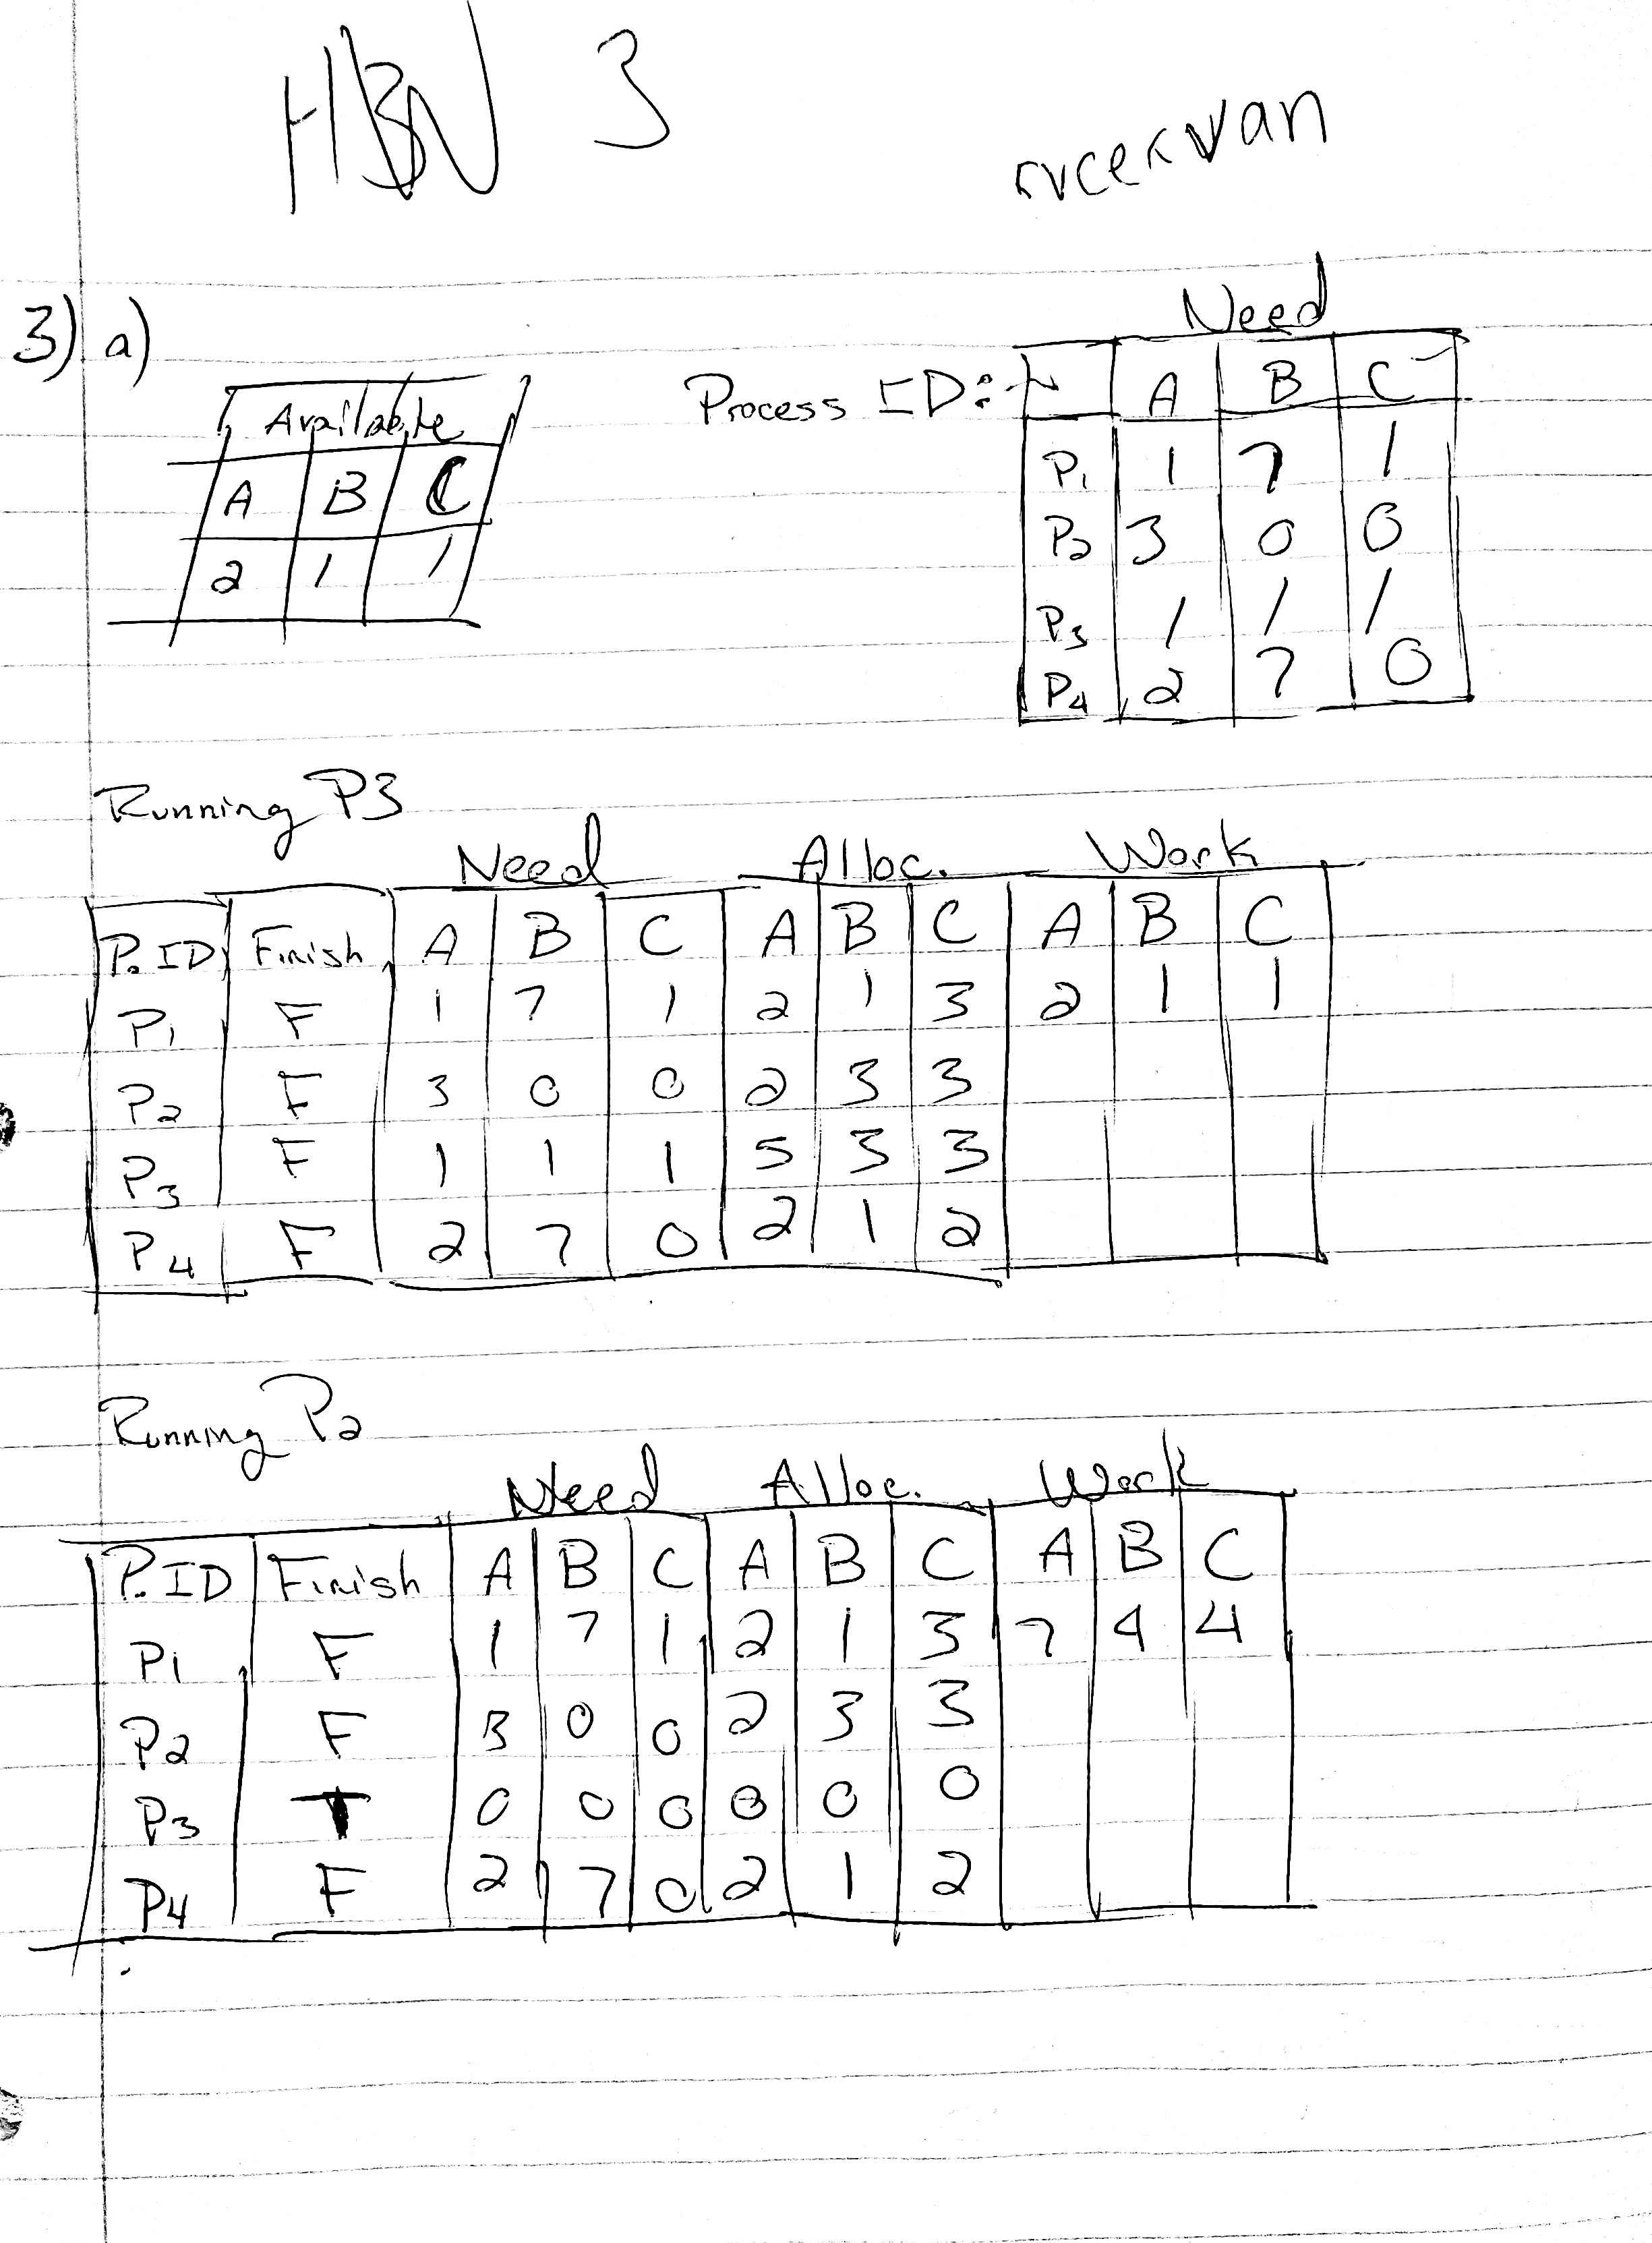 HW 3
rvcervan
3) a)
Available
A B C
2 1 1
Need
Process ID: A B C
P1 1 7 1
P2 3 0 0
P3 1 1 1
P4 2 7 0
Running P3
Need Alloc. Work
P.ID Finish A B C A B C A B C
P1 F 1 7 1 2 1 3 2 1 1
P2 F 3 0 0 2 3 3
P3 F 1 1 1 5 3 3
P4 F 2 7 0 2 1 2
Running P2
Need Alloc. Work
P.ID Finish A B C A B C A B C
P1 F 1 7 1 2 1 3 7 4 4
P2 F 3 0 0 2 3 3
P3 T 0 0 0 0 0 0
P4 F 2 7 0 2 1 2